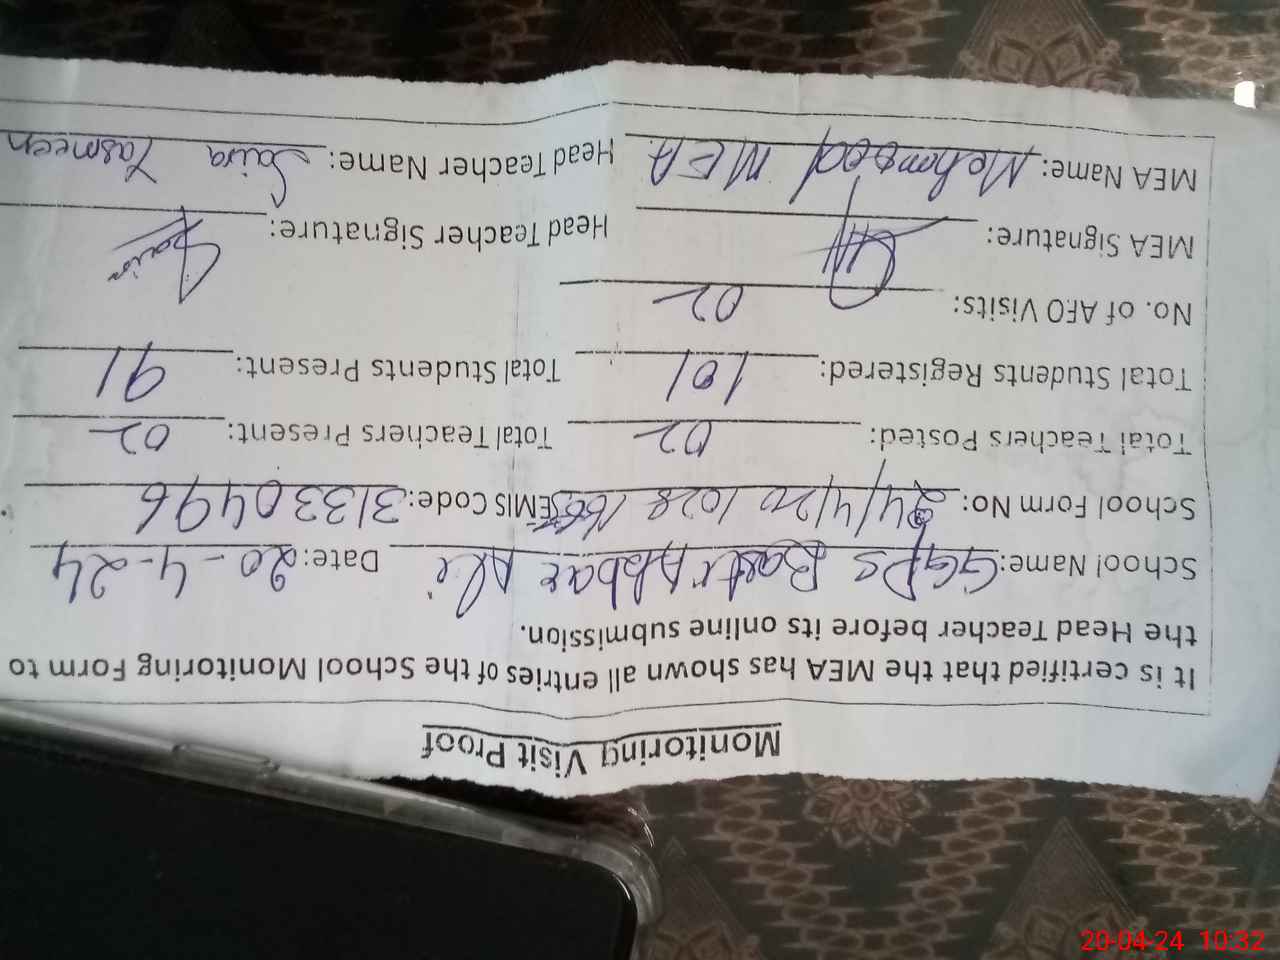 Monitoring Visit Proof
It is certified that the MEA has shown all entries of the School Monitoring Form to
the Head Teacher before its online submission.
School Name: GGPS Basti Abbar Ali Date: 20-4-24
School Form No: EMIS Code: 31330496
Total Teachers Posted: 02 Total Teachers Present: 02
Total Students Registered: 101 Total Students Present: 91
No. of AEO Visits: 02
MEA Signature: Head Teacher Signature:
MEA Name: MEA Head Teacher Name: Saira Yasmeen
20-04-24 10:32